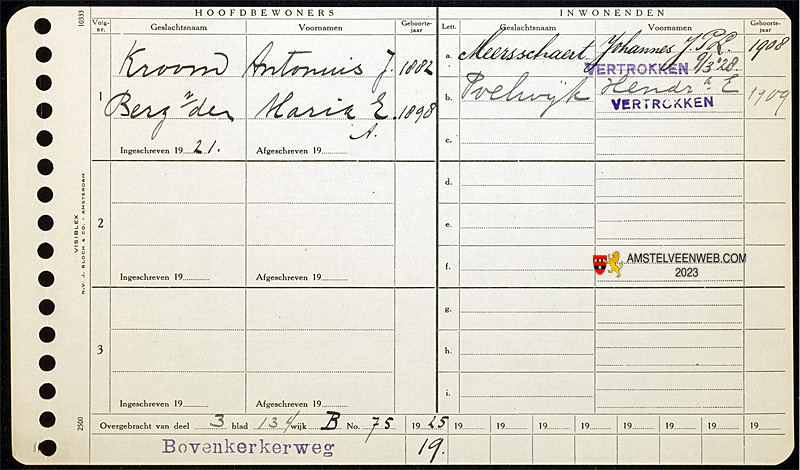 HOOFDBEWONERS
Volg-nr. Geslachtsnaam Voornamen Geboorte-jaar
Kroom Antonius J.
1 Berg v/den Maria E. 1898
A.
Ingeschreven 19 21. Afgeschreven 19
2
Ingeschreven 19 Afgeschreven 19
3
Ingeschreven 19 Afgeschreven 19
INWONENDEN
Lett. Geslachtsnaam Voornamen Geboorte-jaar
a. Meersschaert Johannes J. P. L. 1908
VERTROKKEN 9/3 '28.
b. Poelwijk Hendr.a E 1909
VERTROKKEN
c.
d.
e.
f.
g.
h.
i.
AMSTELVEENWEB.COM
2023
Overgebracht van deel 3 blad wijk B No. 75 19 25 19 19 19 19 19 19 19 19
Bovenkerkerweg 19.
10333
VISIBLEX
N.V. J. BLOCH & CO. - AMSTERDAM
2500